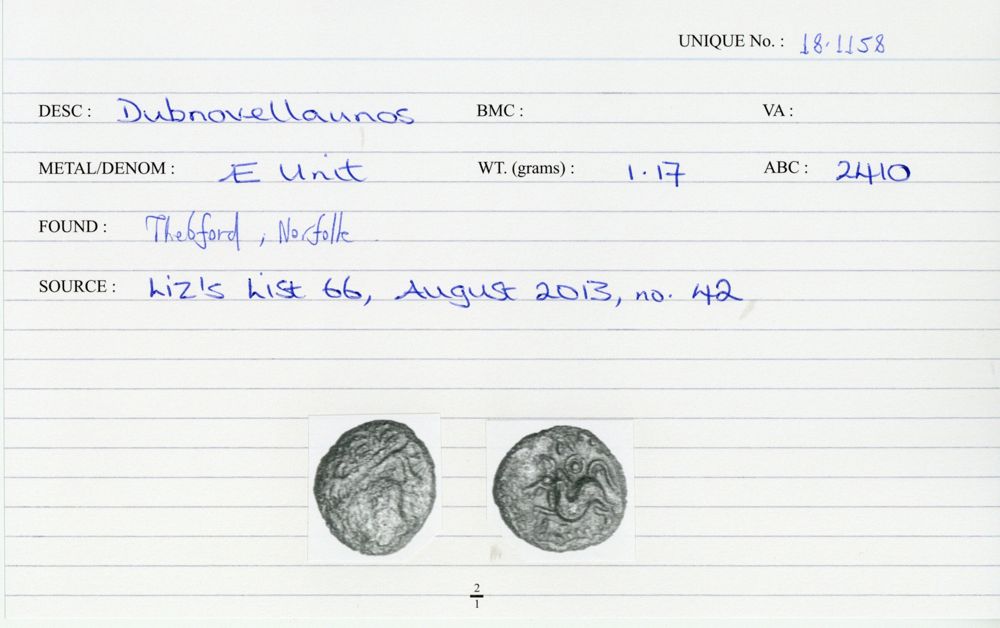 UNIQUE No. : 18.1158
DESC : Dubnovellaunos BMC : VA :
METAL/DENOM : Æ Unit WT. (grams) : 1.17 ABC : 2410
FOUND : Thetford, Norfolk
SOURCE : Liz's List 66, August 2013, no. 42
2
1